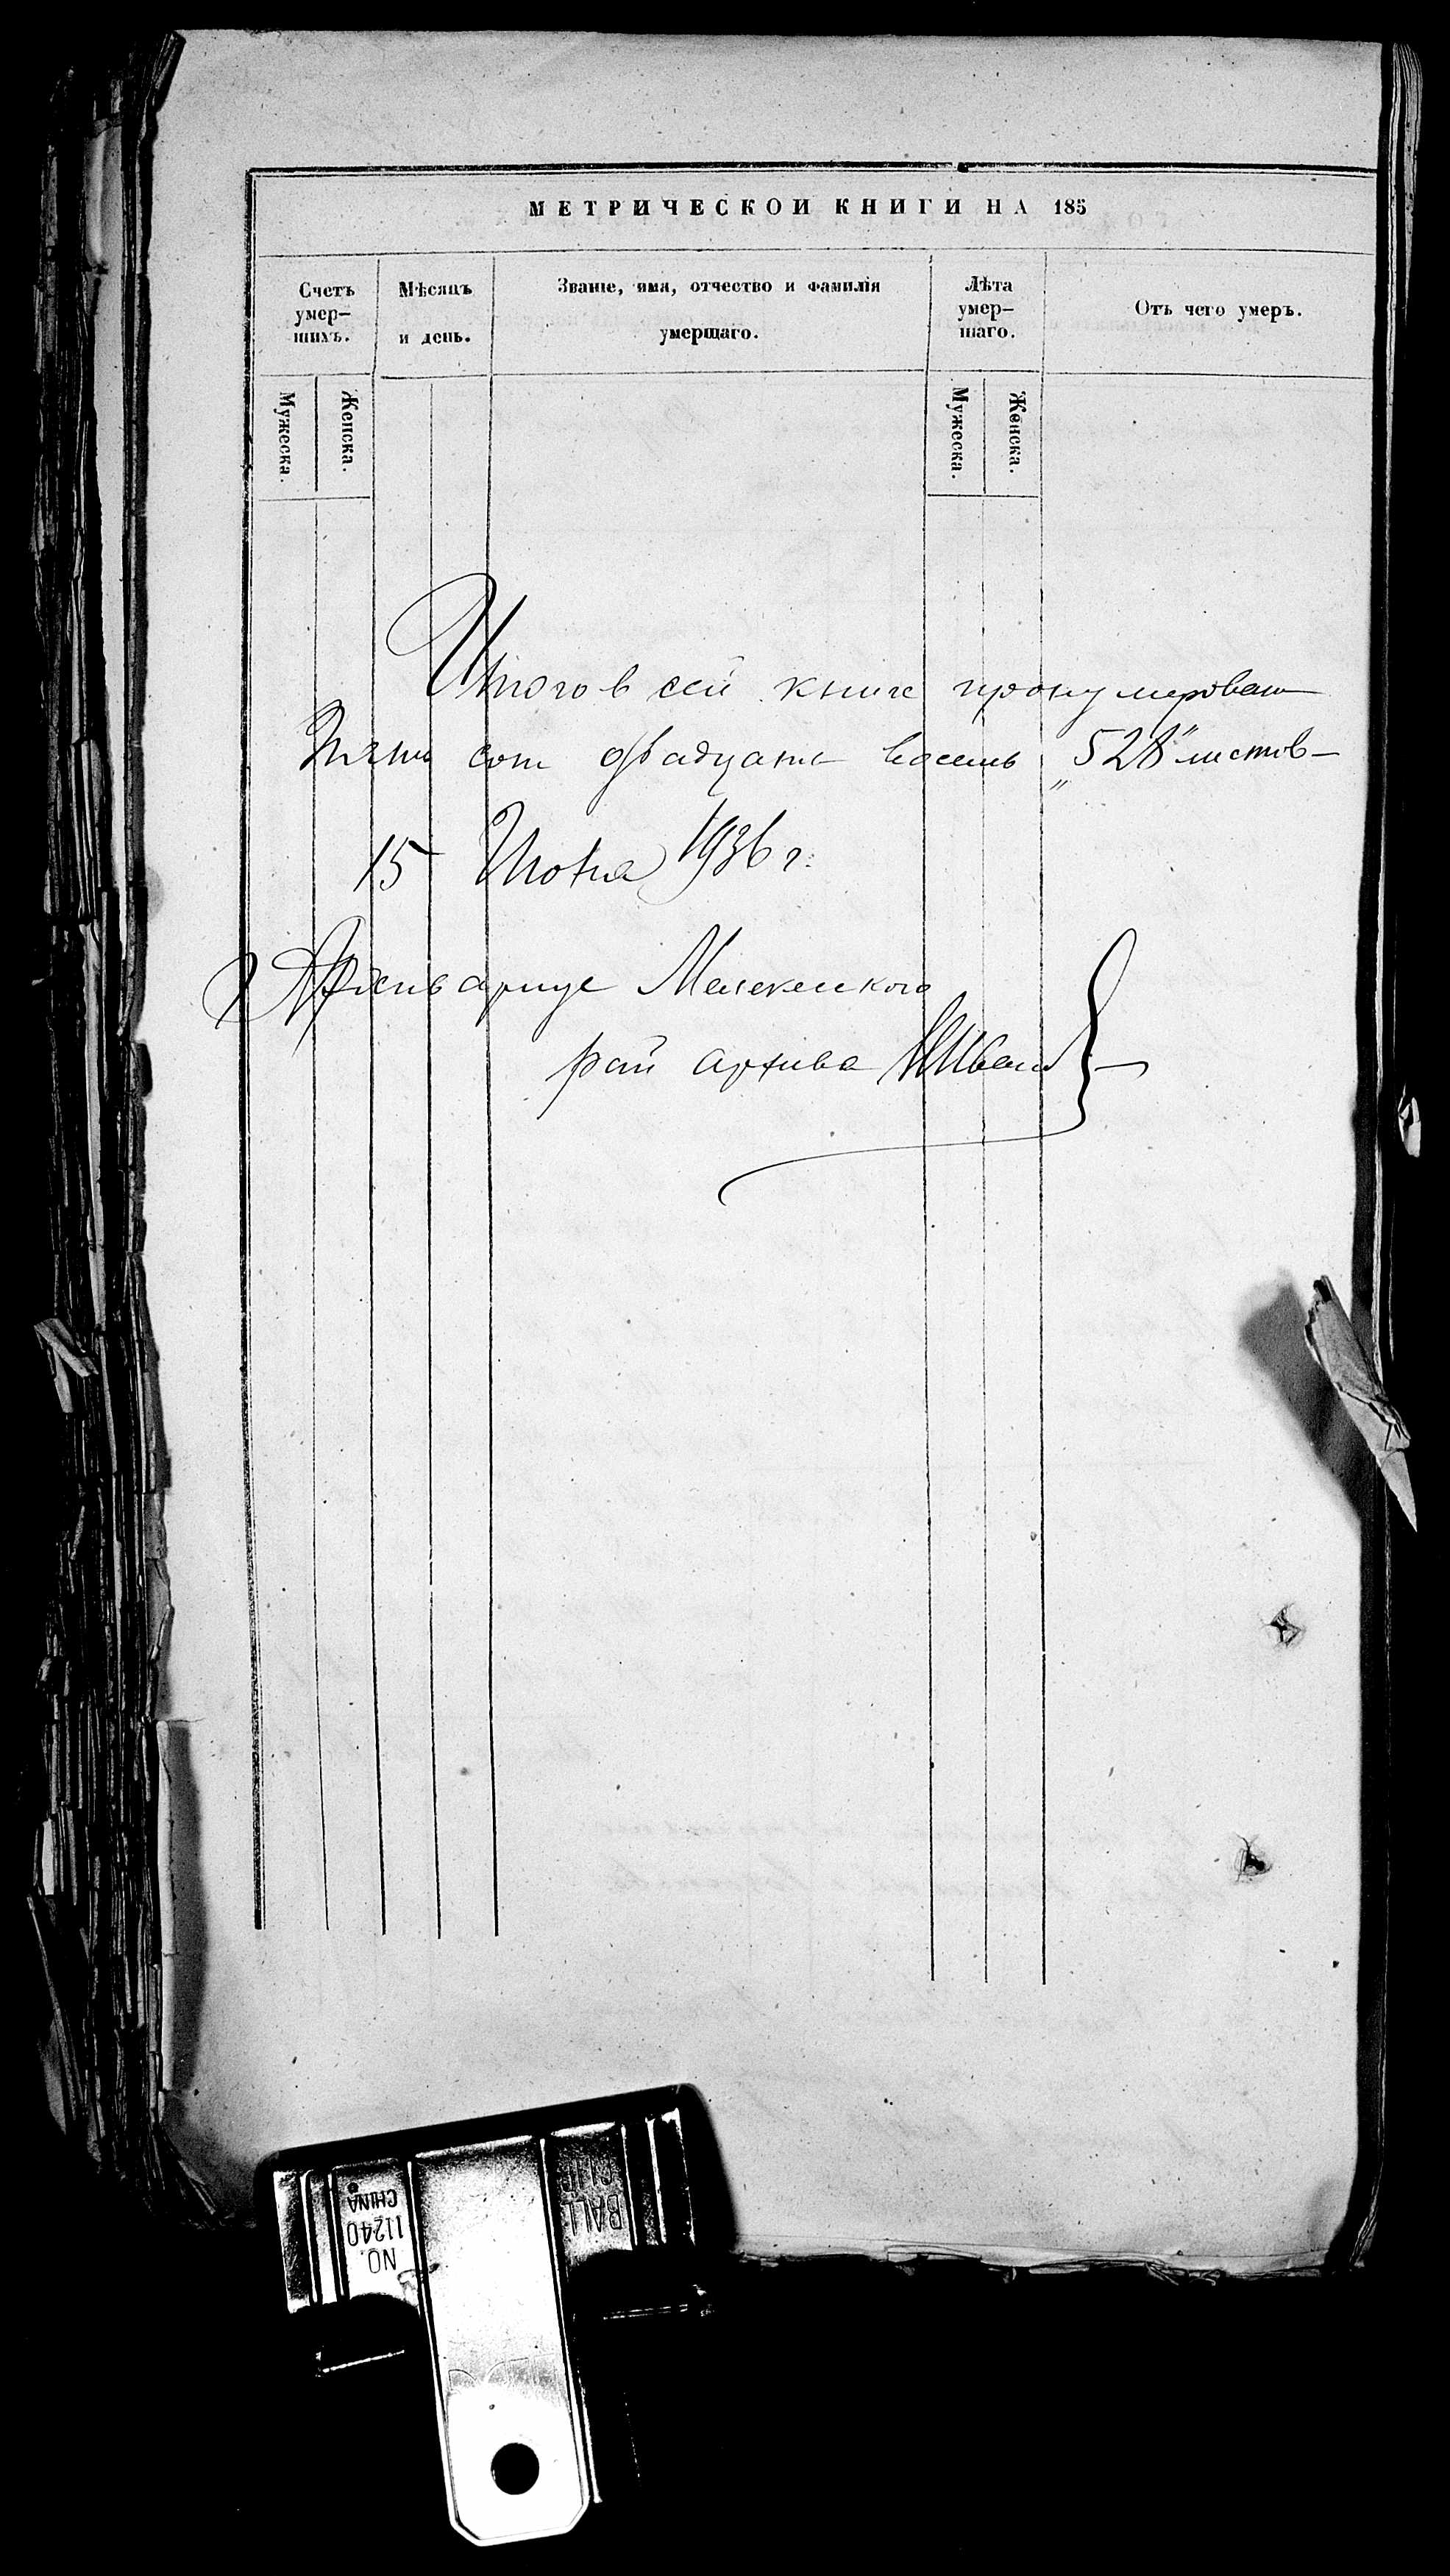 МЕТРИЧЕСКОЙ КНИГИ НА 185
Счетъ
умер-
шихъ.
Мѣсяцъ
и день.
Званіе, имя, отчество и фамилія
умершаго.
Лѣта
умер-
шаго.
Отъ чего умеръ.
Мужеска.
Женска.
Мужеска.
Женска.
Итого в сей книге пронумерован
Пять сот двадцать восемь „528" листов—
15 Июня 1936 г.
Архивариус Мелекеского
рай архива
NO.
11240
CHINA
BALL
CLIP